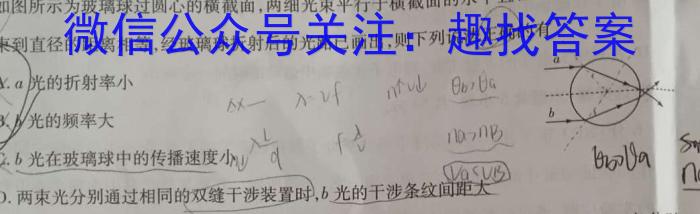 如图所示为玻璃球过圆心的横截面,两细光束平行于横截面的水平
束到直径的距离相等,经玻璃球折射后的光路已画出,则下列说法正确的有
微信公众号关注:趣找答案
A. a 光的折射率小
B. b 光的频率大
C. b 光在玻璃球中的传播速度小
D. 两束光分别通过相同的双缝干涉装置时,b 光的干涉条纹间距大
a
b
θb>θa
na>nB
Va<VB
θb>θa